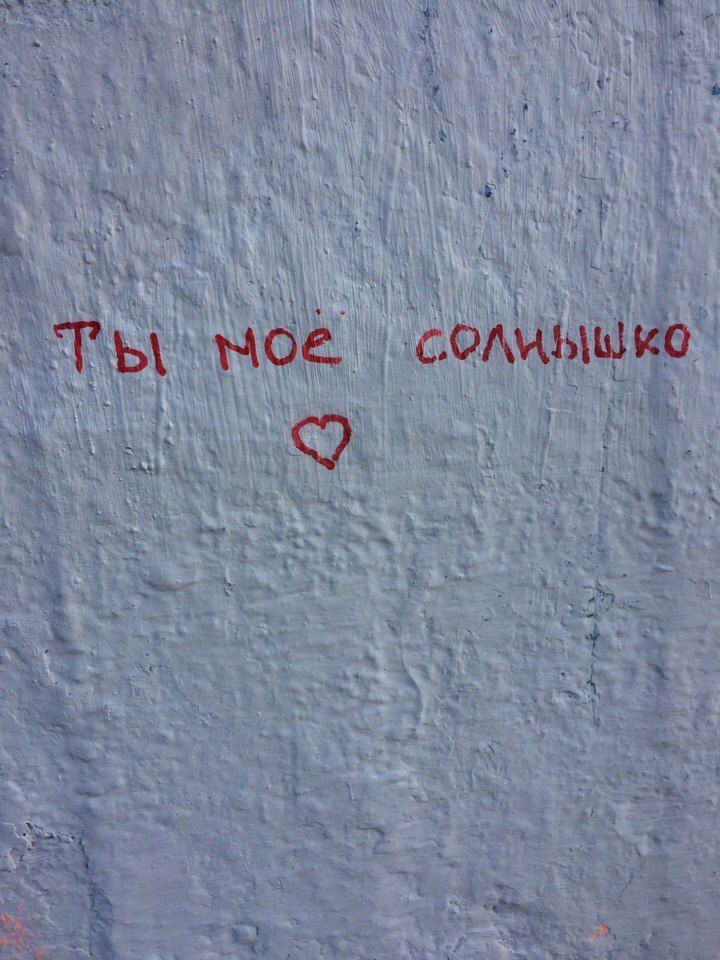 ты моё солнышко